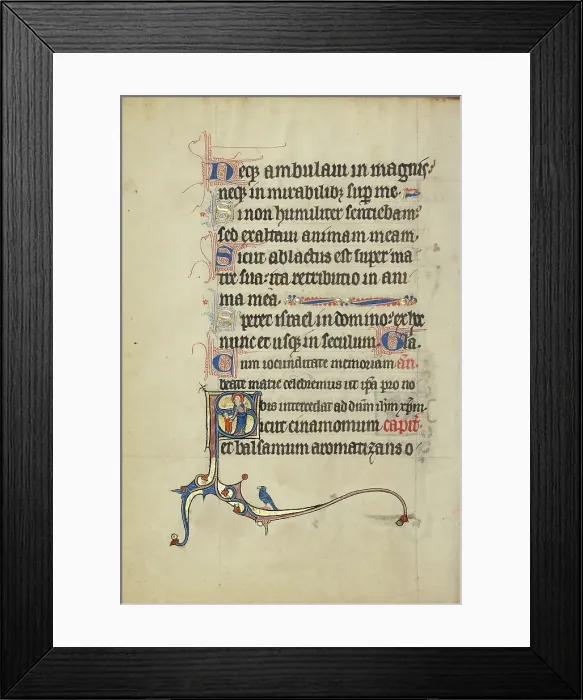 Neq; ambulaui in magnis:
neq; in mirabilib; sup me.
Si non humiliter sentiebam:
sed exaltaui animam meam.
Sicut ablactus est super ma
tre sua: ita retributio in ani
ma mea.
Speret israel in domino: ex hoc
nunc et usq; in seculum. Gla.
Cum iocunditate memoriam an.
beate marie celebremus ut ipa pro no
bis intercedat ad dnm ihm xpm.
Sicut cinamomum capit.
et balsamum aromatizans o